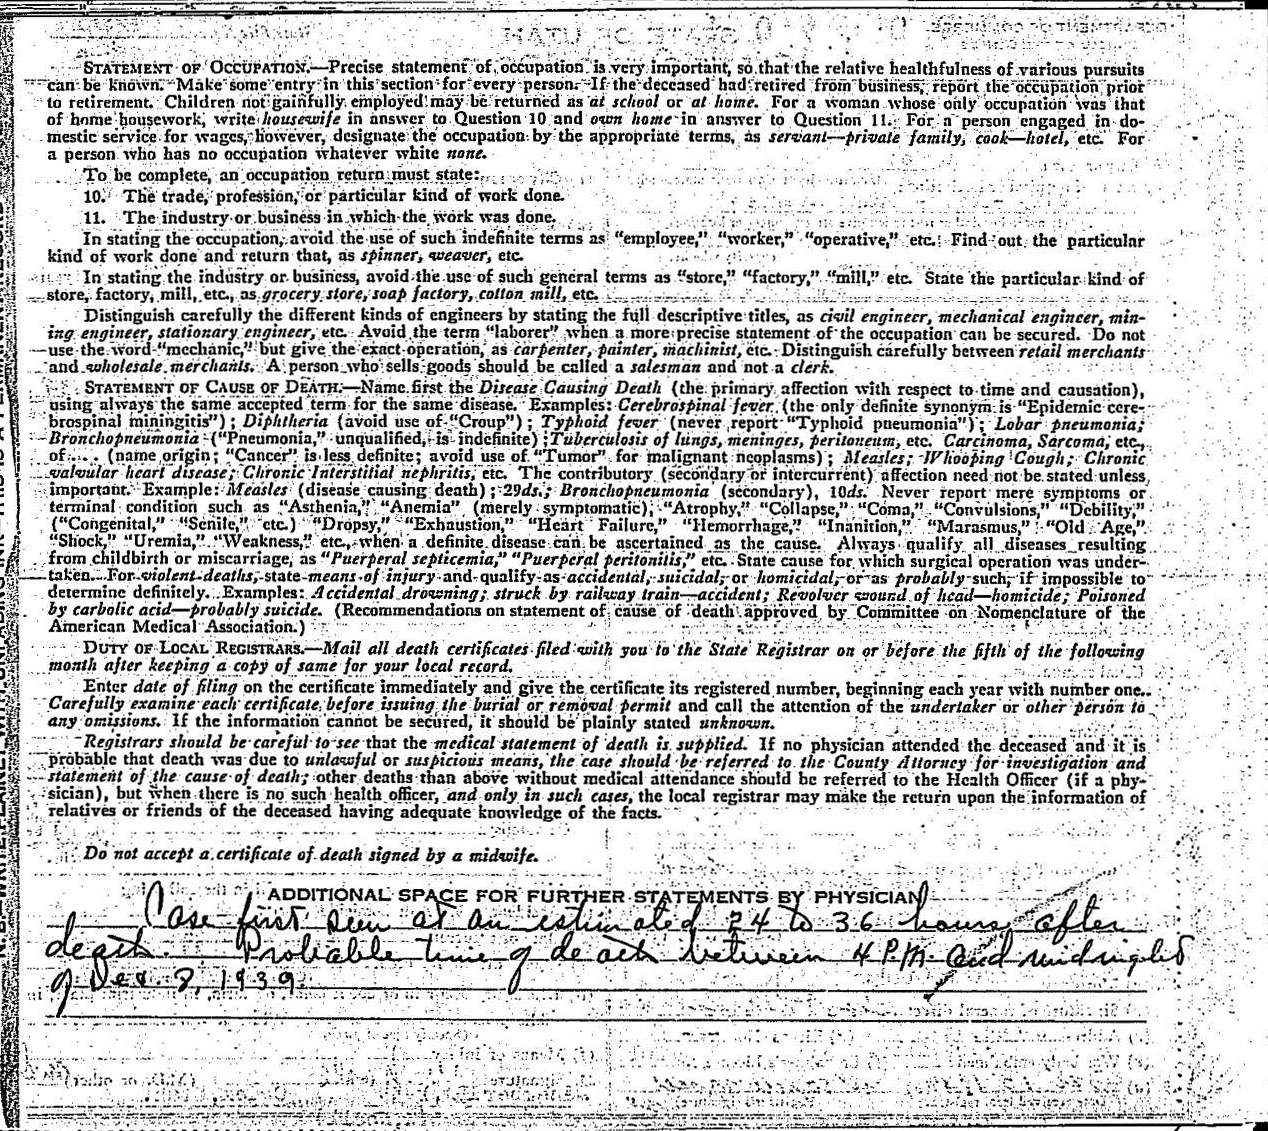 STATE OF UTAH
STATEMENT OF OCCUPATION.—Precise statement of occupation is very important, so that the relative healthfulness of various pursuits
can be known. Make some entry in this section for every person. If the deceased had retired from business, report the occupation prior
to retirement. Children not gainfully employed may be returned as at school or at home. For a woman whose only occupation was that
of home housework, write housewife in answer to Question 10 and own home in answer to Question 11. For a person engaged in do-
mestic service for wages, however, designate the occupation by the appropriate terms, as servant—private family, cook—hotel, etc. For
a person who has no occupation whatever white none.
To be complete, an occupation return must state:
10. The trade, profession, or particular kind of work done.
11. The industry or business in which the work was done.
In stating the occupation, avoid the use of such indefinite terms as "employee," "worker," "operative," etc. Find out the particular
kind of work done and return that, as spinner, weaver, etc.
In stating the industry or business, avoid the use of such general terms as "store," "factory," "mill," etc. State the particular kind of
store, factory, mill, etc., as grocery store, soap factory, cotton mill, etc.
Distinguish carefully the different kinds of engineers by stating the full descriptive titles, as civil engineer, mechanical engineer, min-
ing engineer, stationary engineer, etc. Avoid the term "laborer" when a more precise statement of the occupation can be secured. Do not
use the word "mechanic," but give the exact operation, as carpenter, painter, machinist, etc. Distinguish carefully between retail merchants
and wholesale merchants. A person who sells goods should be called a salesman and not a clerk.
STATEMENT OF CAUSE OF DEATH.—Name first the Disease Causing Death (the primary affection with respect to time and causation),
using always the same accepted term for the same disease. Examples: Cerebrospinal fever (the only definite synonym is "Epidemic cere-
brospinal miningitis"); Diphtheria (avoid use of "Croup"); Typhoid fever (never report "Typhoid pneumonia"); Lobar pneumonia;
Bronchopneumonia ("Pneumonia," unqualified, is indefinite); Tuberculosis of lungs, meninges, peritoneum, etc. Carcinoma, Sarcoma, etc.,
of.... (name origin; "Cancer" is less definite; avoid use of "Tumor" for malignant neoplasms); Measles; Whooping Cough; Chronic
valvular heart disease; Chronic Interstitial nephritis, etc. The contributory (secondary or intercurrent) affection need not be stated unless
important. Example: Measles (disease causing death); 29ds.; Bronchopneumonia (secondary), 10ds. Never report mere symptoms or
terminal condition such as "Asthenia," "Anemia" (merely symptomatic), "Atrophy," "Collapse," "Coma," "Convulsions," "Debility,"
("Congenital," "Senile," etc.) "Dropsy," "Exhaustion," "Heart Failure," "Hemorrhage," "Inanition," "Marasmus," "Old Age,"
"Shock," "Uremia," "Weakness," etc., when a definite disease can be ascertained as the cause. Always qualify all diseases resulting
from childbirth or miscarriage, as "Puerperal septicemia," "Puerperal peritonitis," etc. State cause for which surgical operation was under-
taken. For violent deaths, state means of injury and qualify as accidental, suicidal, or homicidal, or as probably such, if impossible to
determine definitely. Examples: Accidental drowning; struck by railway train—accident; Revolver wound of head—homicide; Poisoned
by carbolic acid—probably suicide. (Recommendations on statement of cause of death approved by Committee on Nomenclature of the
American Medical Association.)
DUTY OF LOCAL REGISTRARS.—Mail all death certificates filed with you to the State Registrar on or before the fifth of the following
month after keeping a copy of same for your local record.
Enter date of filing on the certificate immediately and give the certificate its registered number, beginning each year with number one.
Carefully examine each certificate before issuing the burial or removal permit and call the attention of the undertaker or other person to
any omissions. If the information cannot be secured, it should be plainly stated unknown.
Registrars should be careful to see that the medical statement of death is supplied. If no physician attended the deceased and it is
probable that death was due to unlawful or suspicious means, the case should be referred to the County Attorney for investigation and
statement of the cause of death; other deaths than above without medical attendance should be referred to the Health Officer (if a phy-
sician), but when there is no such health officer, and only in such cases, the local registrar may make the return upon the information of
relatives or friends of the deceased having adequate knowledge of the facts.
Do not accept a certificate of death signed by a midwife.
ADDITIONAL SPACE FOR FURTHER STATEMENTS BY PHYSICIAN
Case first seen at an estimated 24 to 36 hours after
death. Probable time of death between 4 P.M. and midnight
of Dec. 8, 1939.